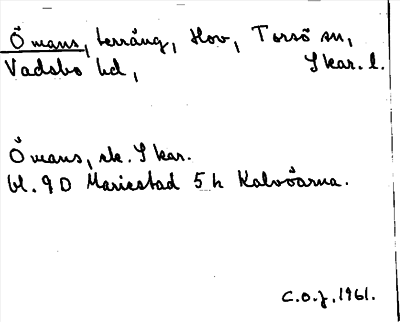 Ömans, terräng, Hov, Torsö sn,
Vadsbo hd, Skar. l.
Ömans, ek. Skar.
bl. 9 D Mariestad 5 h Kalvöarna.
C.O.J., 1961.